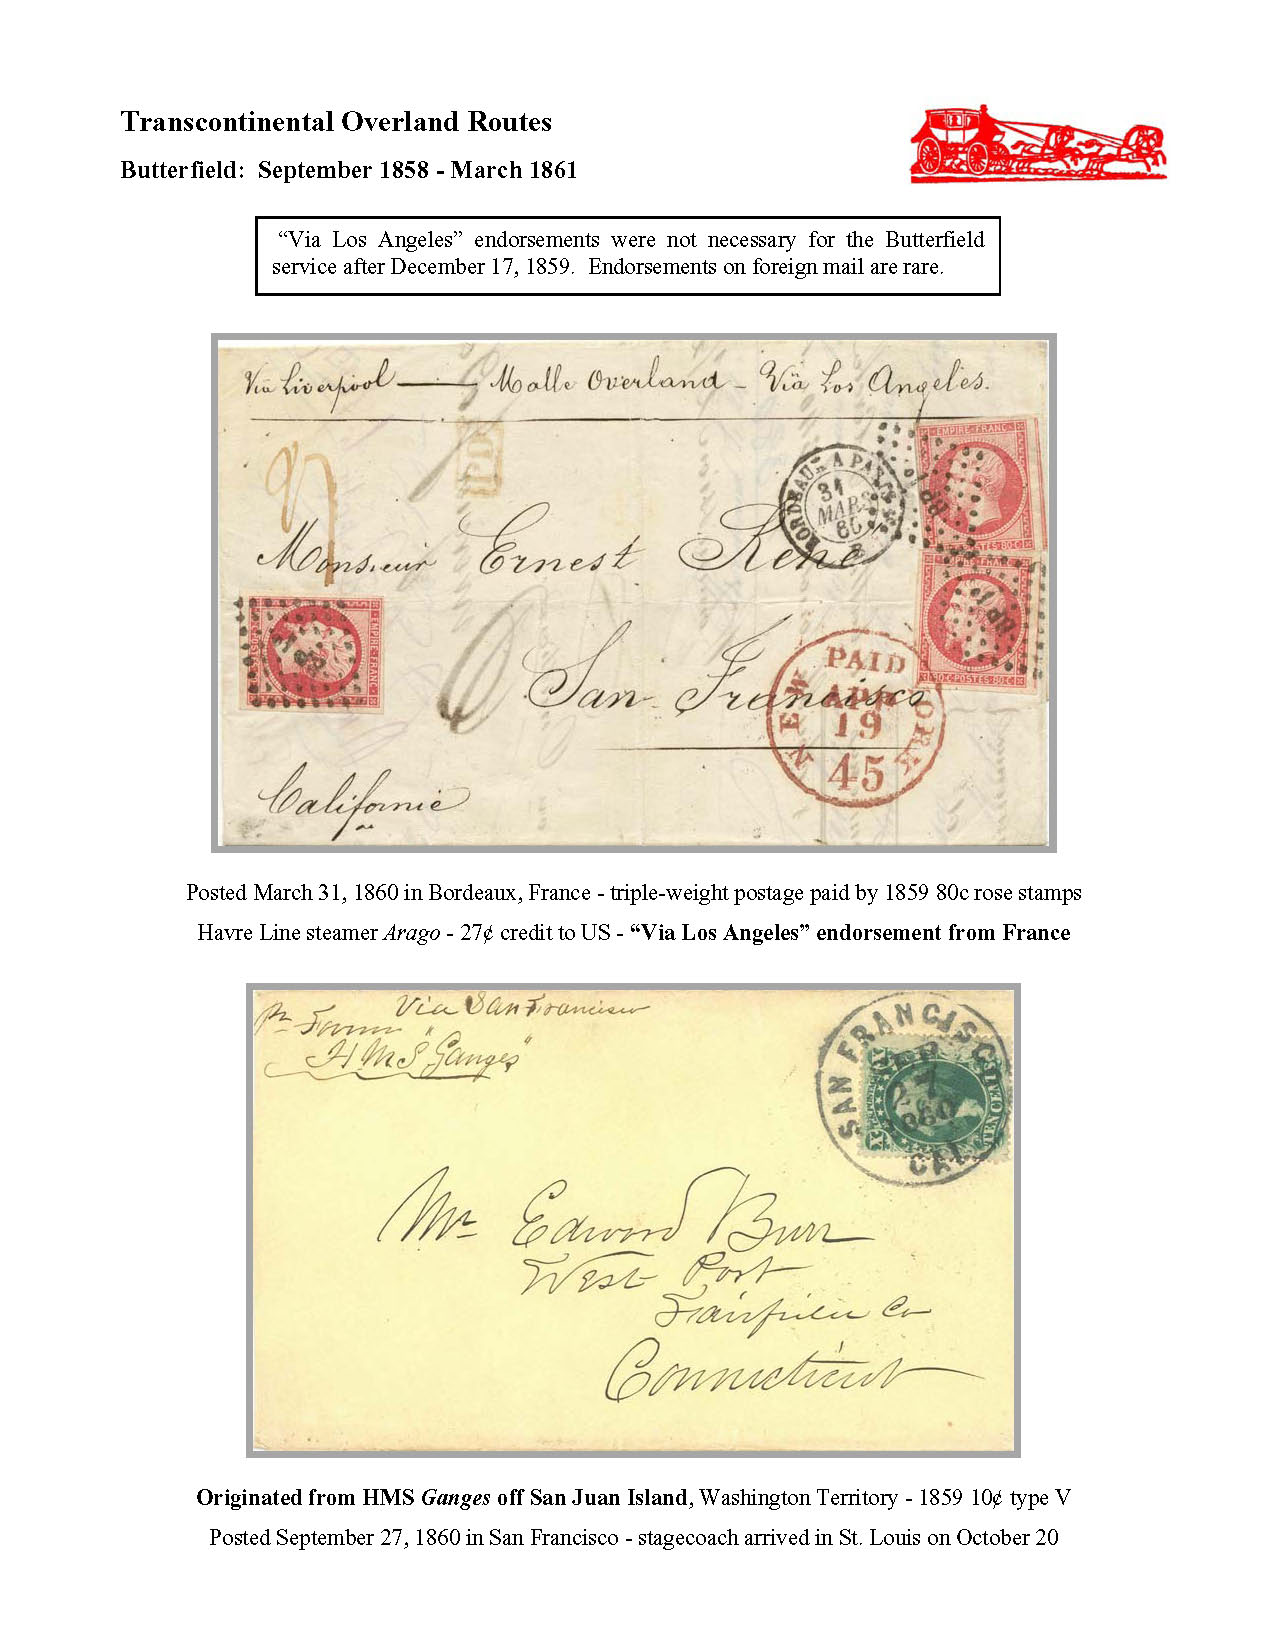 Transcontinental Overland Routes
Butterfield: September 1858 - March 1861
“Via Los Angeles” endorsements were not necessary for the Butterfield
service after December 17, 1859. Endorsements on foreign mail are rare.
Via Liverpool — Malle Overland - Via Los Angeles.
27
PD
BORDEAUX A PARIS
31
MARS
60
B
EMPIRE FRANC
POSTES 80 C
EMPIRE FRANC
80 C POSTES 80 C
Monsieur Ernest René
EMPIRE FRANC
San Francisco
NEW YORK
PAID
APR
19
45
Californie
Posted March 31, 1860 in Bordeaux, France - triple-weight postage paid by 1859 80c rose stamps
Havre Line steamer Arago - 27¢ credit to US - “Via Los Angeles” endorsement from France
Via San Francisco
H M S "Ganges"
SAN FRANCISCO
CAL
SEP
27
1860
TEN CENTS
Mr Edward Burr
West Port
Fairfield Co
Connecticut
Originated from HMS Ganges off San Juan Island, Washington Territory - 1859 10¢ type V
Posted September 27, 1860 in San Francisco - stagecoach arrived in St. Louis on October 20